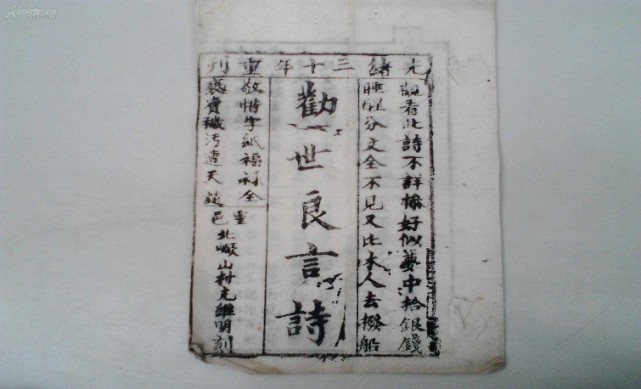 光緒三十年重刊
觀看此詩不詳條好似夢中拾銀錢
睡醒分文全不見又比木人去撥船
勸世良言詩
敬惜字紙福祿全
穢污遭天
邑北嶺山村
明刻